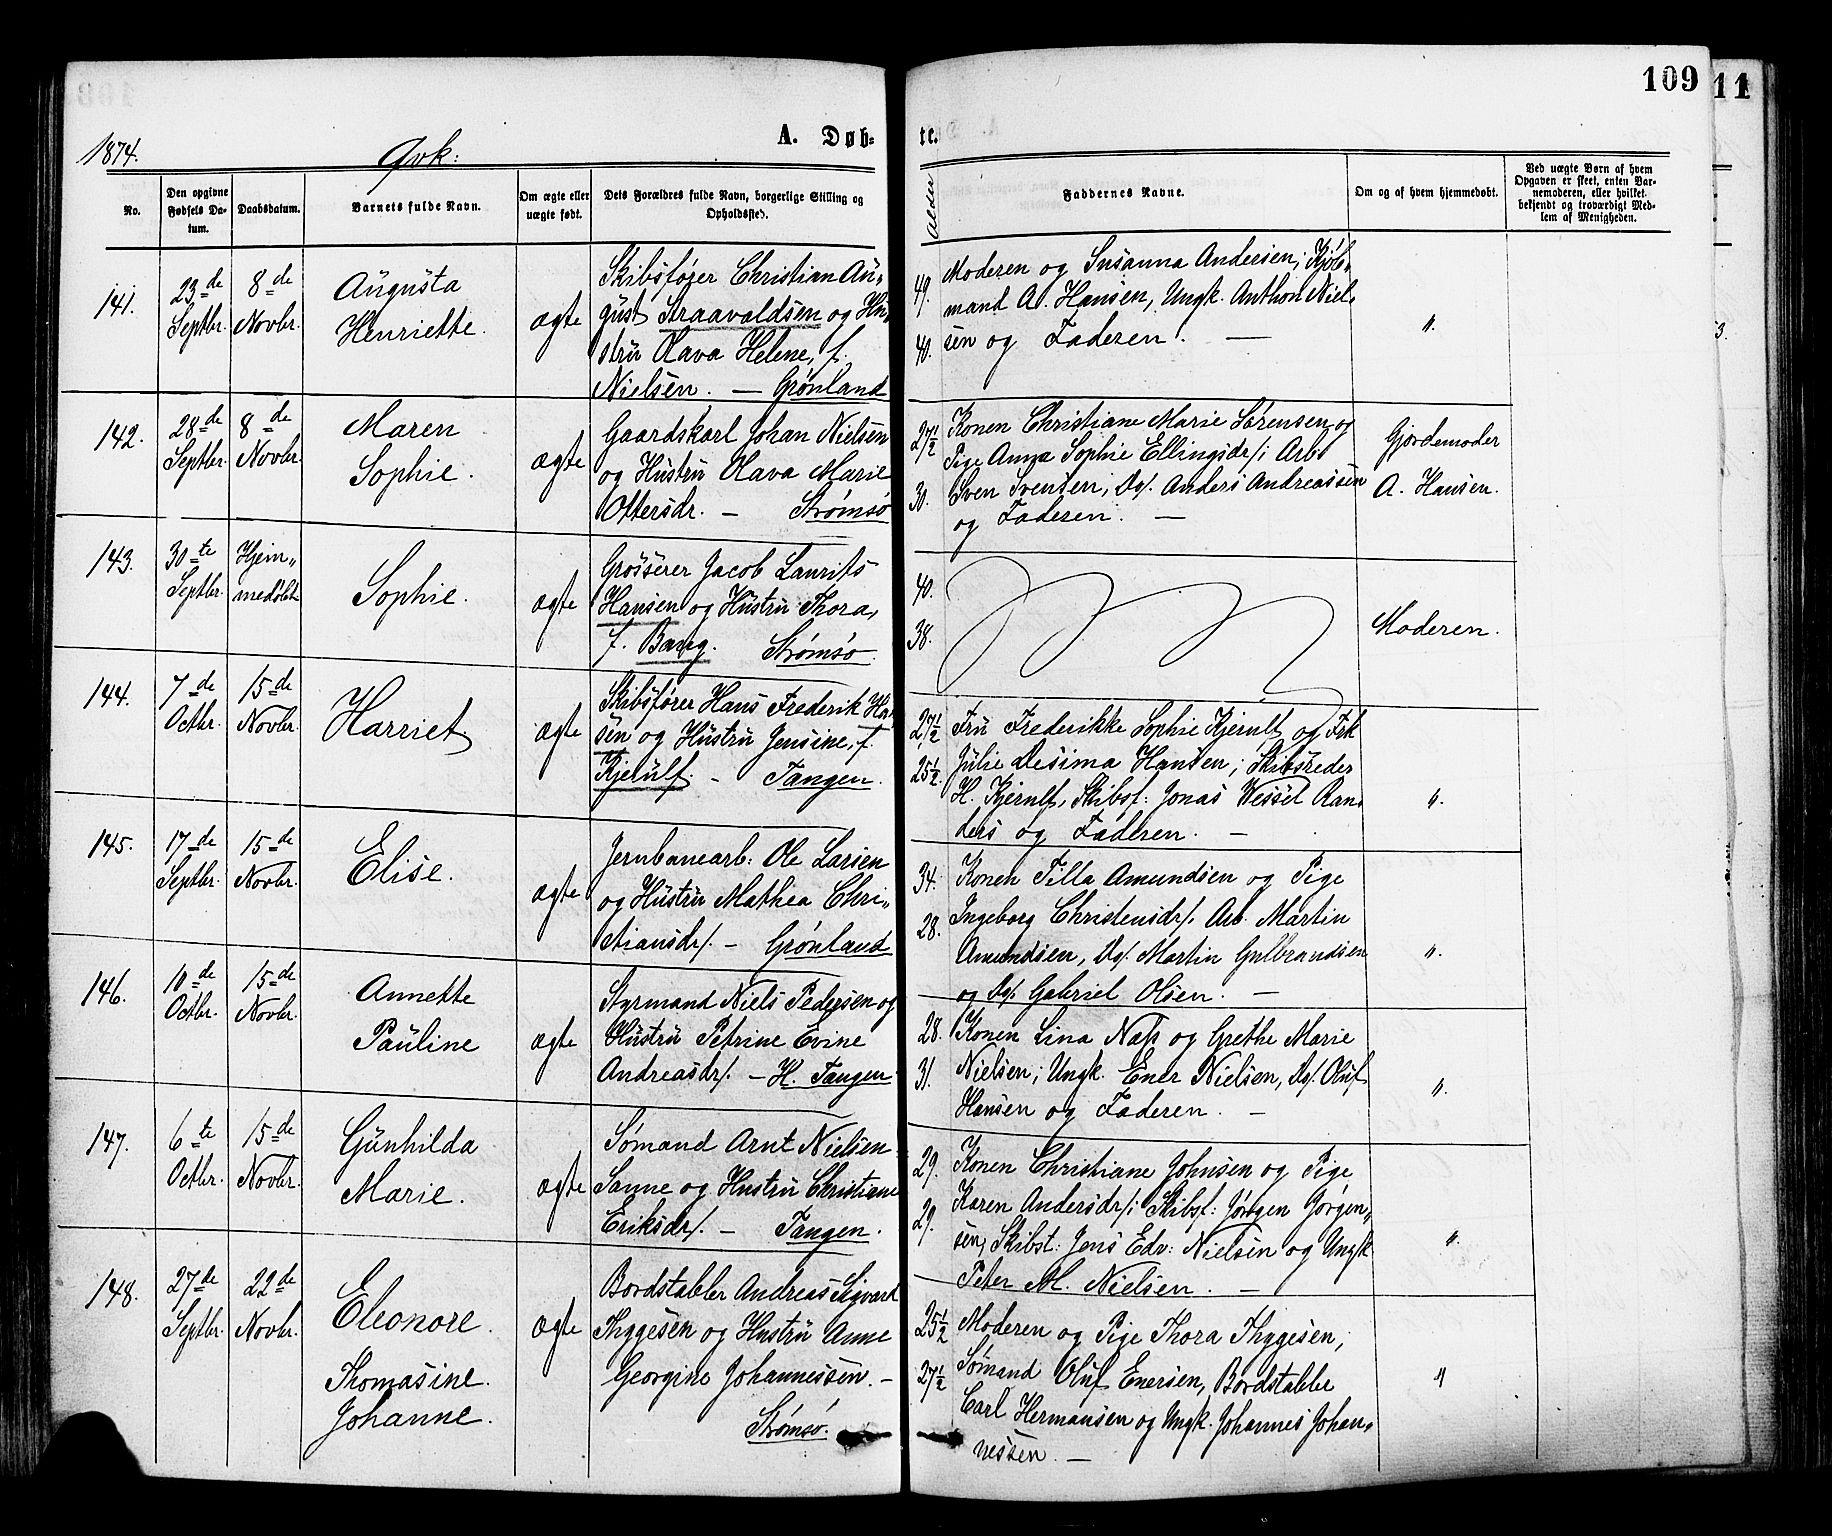 109
11
1874.
Qvk:
A. Døb-
te.
No.
Den opgivne Fødsels Da-
tum.
Daabsdatum.
Barnets fulde Navn.
Om ægte eller
uægte født.
Dets Forældres fulde Navn, borgerlige Stilling og
Opholdssted.
Alder
Faddernes Navne.
Om og af hvem hjemmedøbt.
Ved uægte Børn af hvem
Opgaven er skeet, enten Bar-
nemoderen, eller hvilket
bekjendt og troværdigt Med-
lem af Menigheden.
141.
23de
Septbr.
8de
Novbr.
Augusta
Henriette.
ægte
Skibsfører Christian Au-
gust Straavaldsen og Hu-
stru Olava Helene, f.
Nielsen. — Grønland
49.
40.
Moderen og Susanna Andersen; Kjøb-
mand A. Hansen, Ungk. Anthon Niel-
sen og Faderen. —
"
142.
28de
Septbr.
8de
Novbr.
Maren
Sophie.
ægte
Gaardskarl Johan Nielsen
og Hustru Olava Marie
Ottersdr. — Strømsø
27½
30.
Konen Christiane Marie Sørensen og
Pige Anna Sophie Ellingsdr/; Arb
Sven Svensen, Do/. Anders Andreassen
og Faderen. —
Gjordemoder
A. Hansen.
143.
30te
Septbr.
Hjem-
medøbt
Sophie.
ægte
Grosserer Jacob Laurits
Hansen og Hustru Thora,
f. Bang. Strømsø.
40.
38.
Moderen.
144.
7de
Octbr.
15de
Novbr.
Harriet
ægte
Skibsfører Hans Frederik Han
sen og Hustru Jensine, f.
Kjerulf. — Tangen.
27½
25½.
Fru Frederikke Sophie Kjerulf og Frk
Julie Desima Hansen; Skibsreder
H. Kjerulf, Skibsf: Jonas Wessel Ran-
ders og Faderen. —
"
145.
17de
Septbr.
15de
Novbr.
Elise.
ægte
Jernbanearb: Ole Larsen
og Hustru Mathea Chri-
stiansdr/. — Grønland
34.
28.
Konen Tilla Amundsen og Pige
Ingeborg Christensdr/; Arb. Martin
Amundsen, Do/. Martin Gulbrandsen
og Do/. Gabriel Olsen. —
"
146.
10de
Octbr.
15de
Novbr.
Annette
Pauline
ægte
Styrmand Niels Pedersen og
Hustru Petrine Evine
Andreasdr/. — H. Tangen
28.
31.
Konen Lina Næss og Grethe Marie
Nielsen; Ungk. Ener Nielsen, Do/. Oluf
Hansen og Faderen. —
"
147.
6te
Octbr.
15de
Novbr.
Gunhilda
Marie.
ægte
Sømand Arnt Nielsen
Sanne og Hustru Christiane
Eriksdr/. — Tangen.
29.
29.
Konen Christiane Johnsen og Pige
Karen Andersdr/; Skibsf: Jørgen Jørgen-
sen, Skibst: Jens Edv: Nielsen og Ungk
Peter M. Nielsen. —
"
148.
27de
Septbr.
22de
Novbr.
Eleonore.
Thomasine.
Johanne.
ægte
Bordstabler Andreas Sigvard
Thygesen og Hustru Anne
Georgine Johannessen. —
Strømsø.
25½
27½
Moderen og Pige Thora Thygesen;
Sømand Oluf Enersen, Bordstabler
Carl Hermansen og Ungk. Johannes Johan-
nessen. —
"